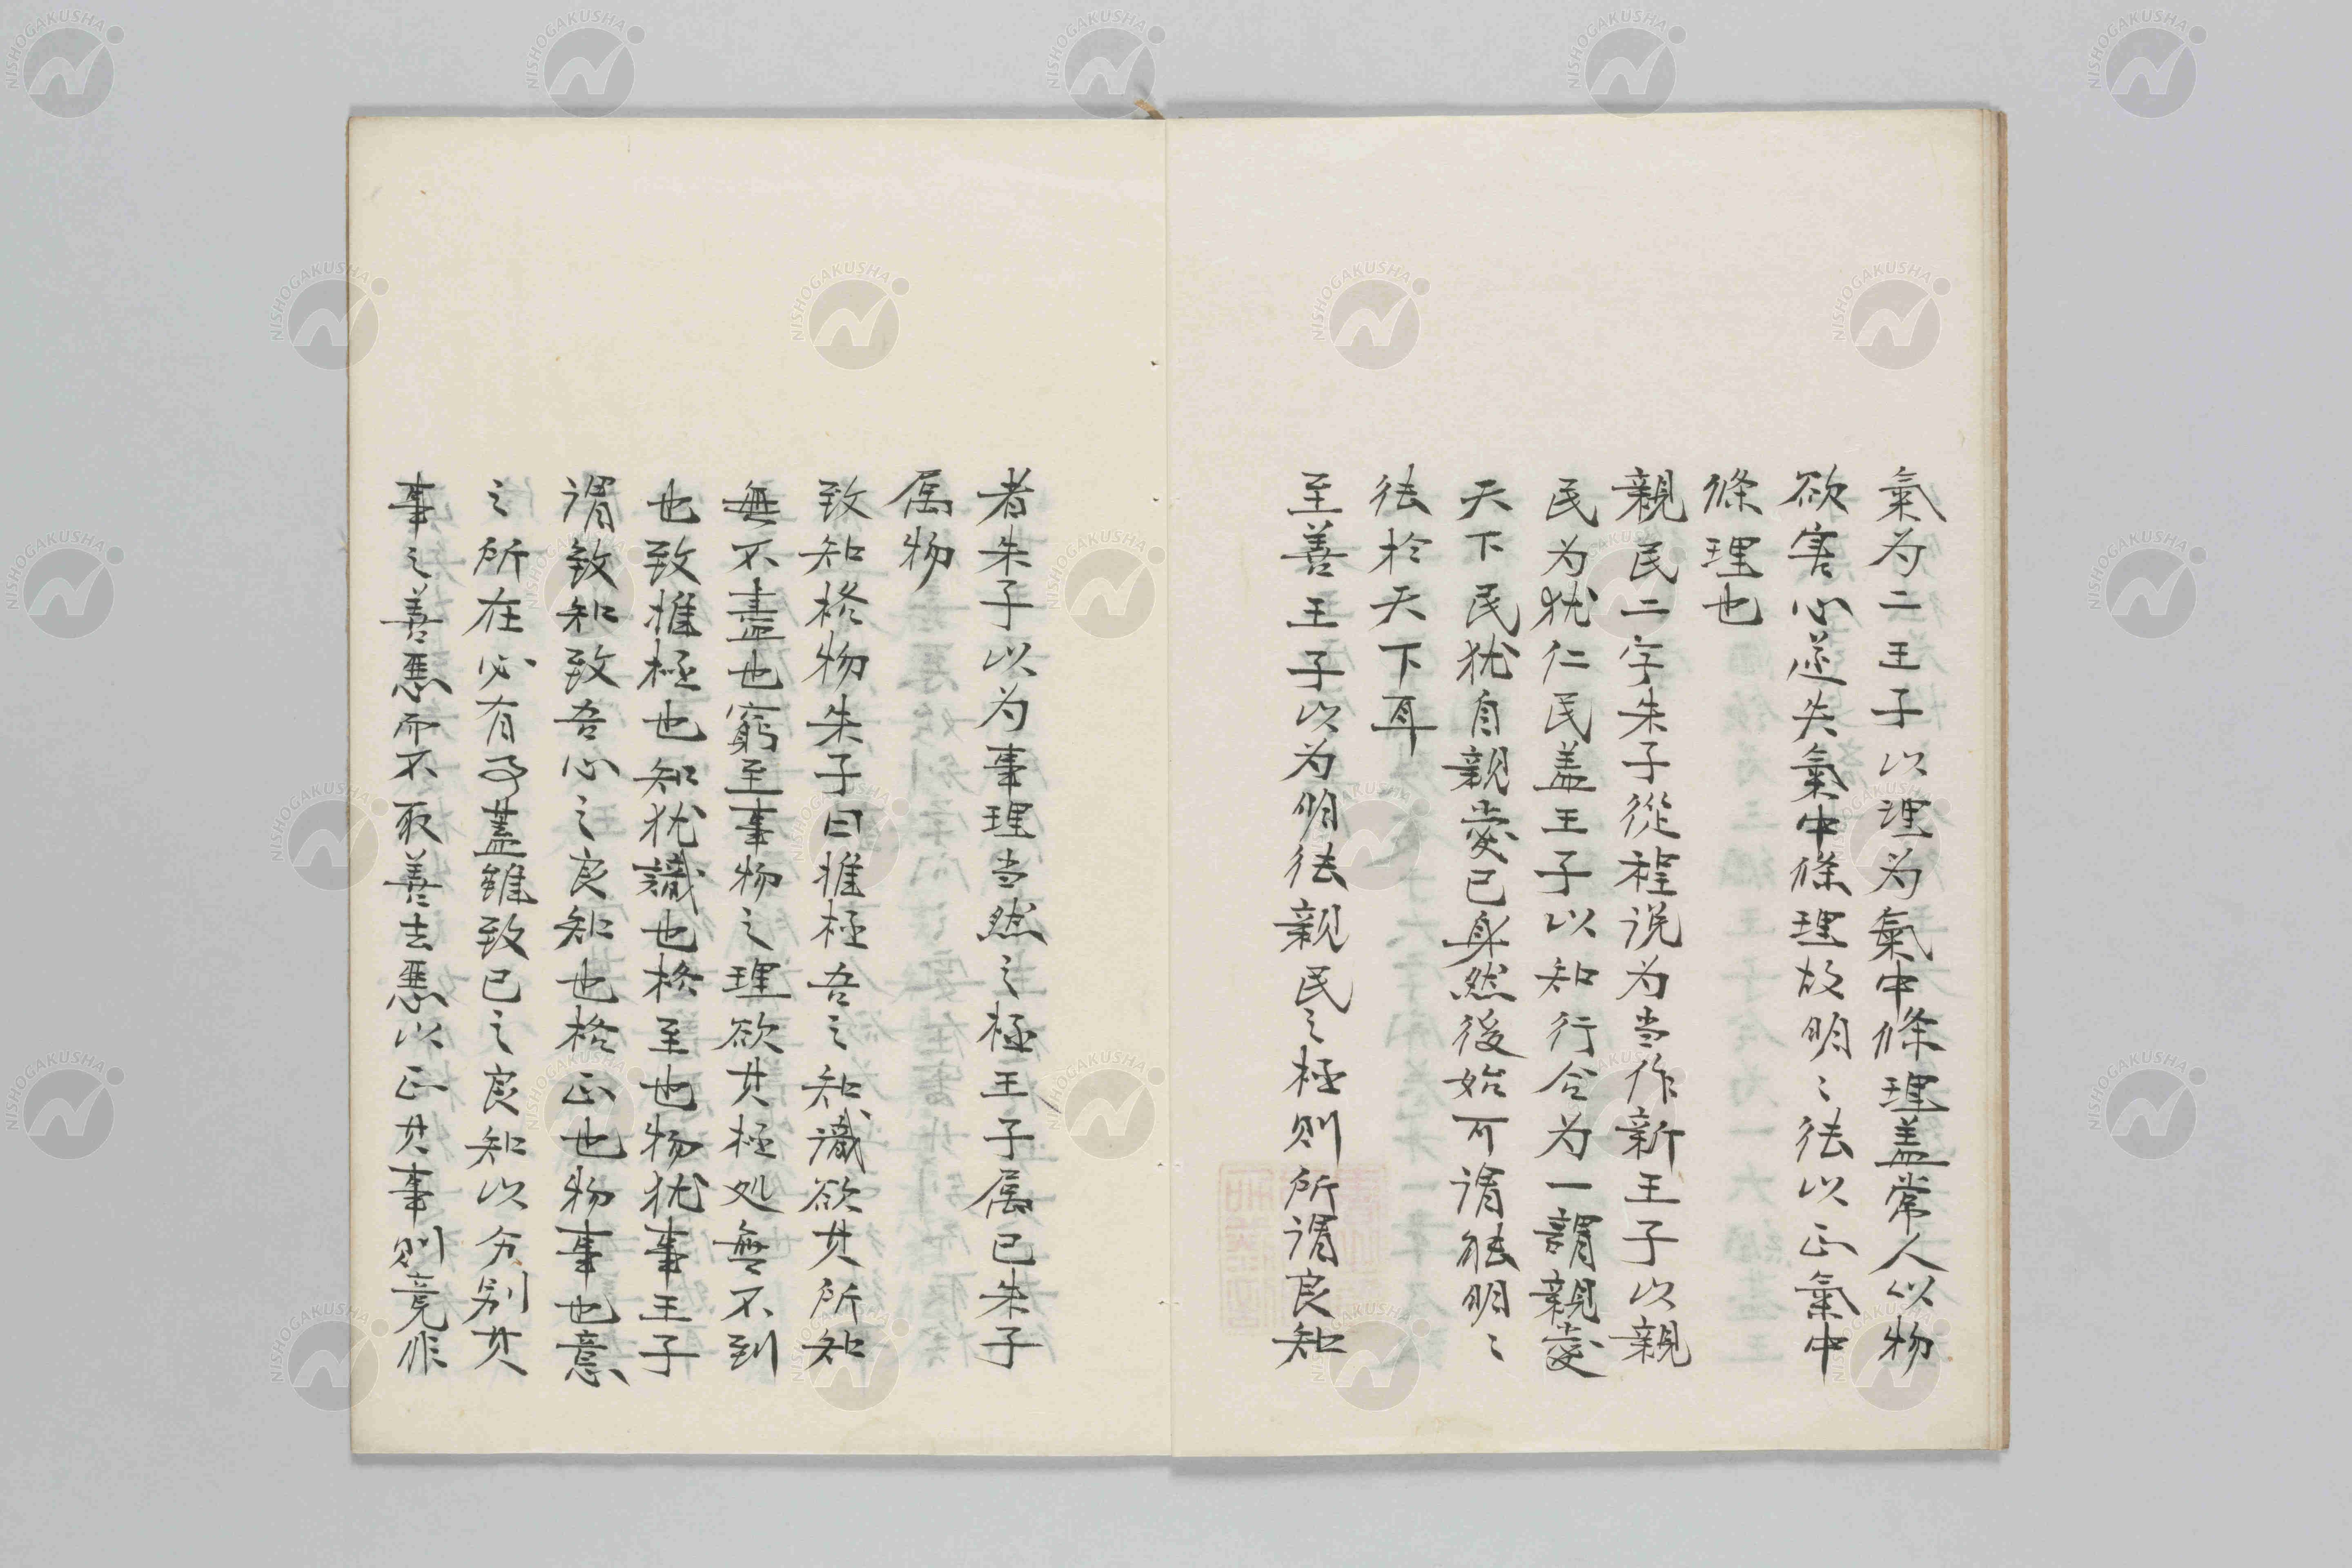 氣为二王子以理为氣中條理盖常人以物
欲害心遂失氣中條理故明〻徳以正氣中
條理也
親民二字朱子從程说为当作新王子以親
民为犹仁民盖王子以知行合为一謂親愛
天下民犹自親愛已身然後始可謂能明〻
徳於天下耳
至善王子以为明徳親民之極則所谓良知
者朱子以为事理当然之極王子属已朱子
属物
致知格物朱子曰推極吾之知識欲其所知
無不盡也窮至事物之理欲其極处無不到
也致推極也知犹識也格至也物犹事王子
谓致知致吾心之良知也格正也物事也意
之所在必有事蓋雖致已之良知以分别其
事之善悪而不取善去悪以正其事則竟非
NISHOGAKUSHA